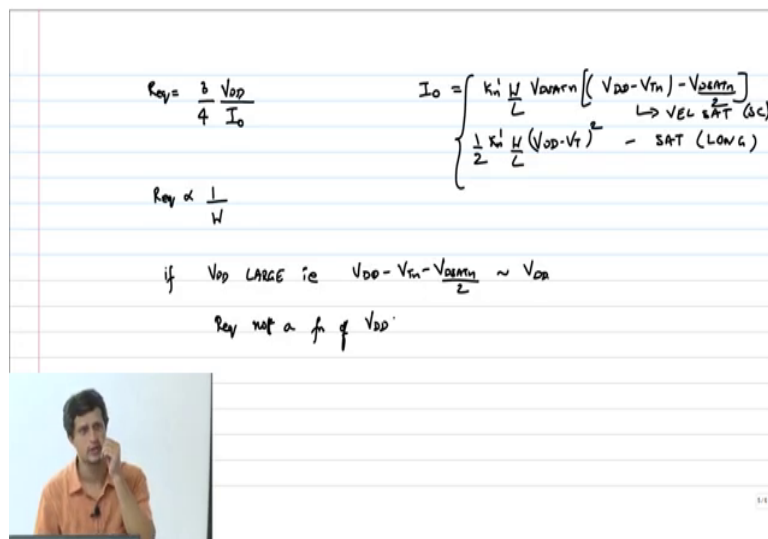 Req = 3/4 VDD/I0
I0 = { kn' W/L VDSATn [(VDD-VTn) - VDSATn/2]
↳ VEL SAT (SC)
1/2 kn' W/L (VDD-VT)² - SAT (LONG)
Req ∝ 1/W
if VDD LARGE ie VDD - VTn - VDSATn/2 ~ VDD
Req not a fn of VDD.